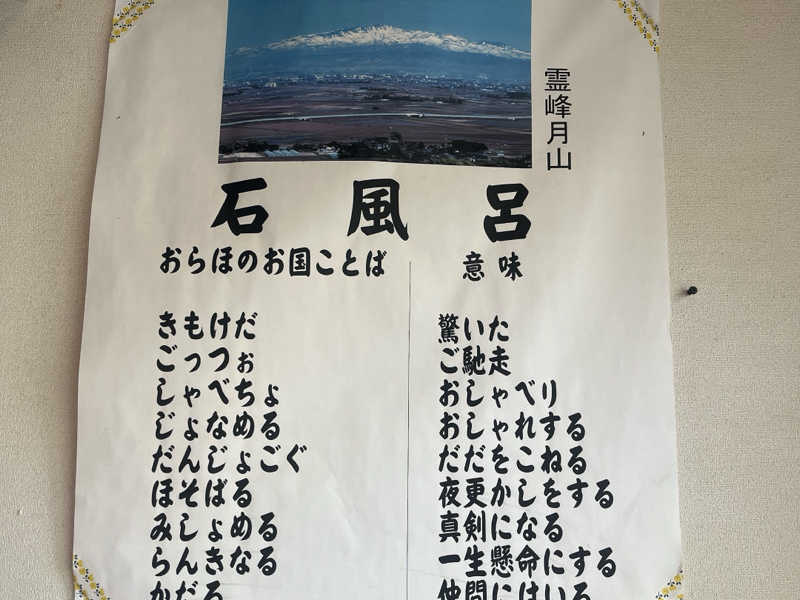 霊峰月山
石風呂
おらほのお国ことば 意味
きもけだ 驚いた
ごっつぉ ご馳走
しゃべちょ おしゃべり
じょなめる おしゃれする
だんじょごぐ だだをこねる
ほそばる 夜更かしをする
みしょめる 真剣になる
らんきなる 一生懸命にする
かだる 仲間にはいる